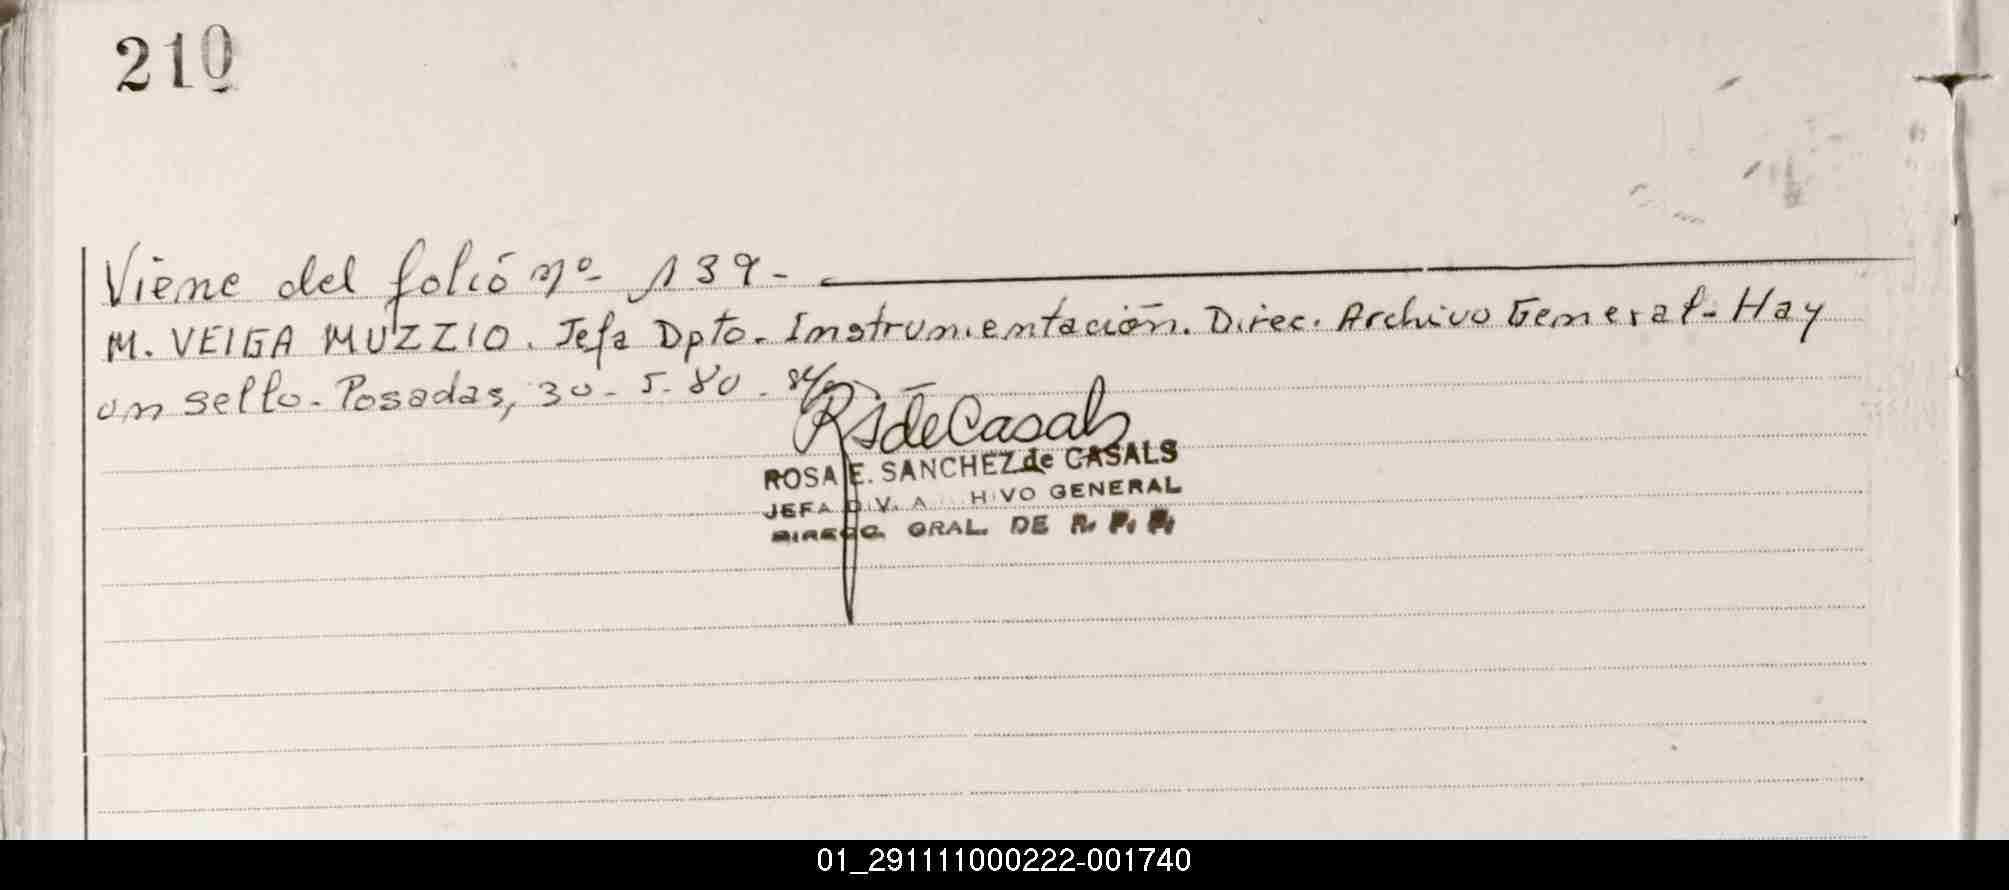 210
Viene del folió nº 139-
M. VEIGA MUZZIO. Jefa Dpto. Instrumentación. Direc. Archivo General- Hay
un sello- Posadas, 30- 5- 80-
RSdeCasals
ROSA E. SANCHEZ de CASALS
JEFA DIV. A HIVO GENERAL
DIRECC. GRAL. DE R. P. P.
01_291111000222-001740